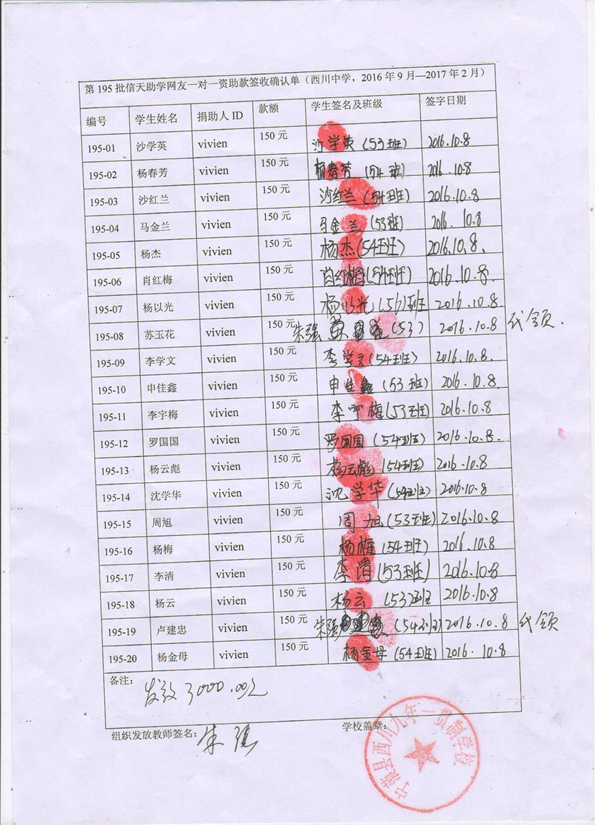 第195批信天助学网友一对一资助款签收确认单（西川中学，2016年9月—2017年2月）
编号 学生姓名 捐助人ID 款额 学生签名及班级 签字日期
195-01 沙学英 vivien 150元 沙学英（53班） 2016.10.8
195-02 杨春芳 vivien 150元 杨春芳（54班） 2016.10.8
195-03 沙红兰 vivien 150元 沙红兰（54班） 2016.10.8
195-04 马金兰 vivien 150元 马金兰（53班） 2016.10.8
195-05 杨杰 vivien 150元 杨杰（54班） 2016.10.8.
195-06 肖红梅 vivien 150元 肖红梅（54班） 2016.10.8.
195-07 杨以光 vivien 150元 杨以光（51班 2016.10.8
195-08 苏玉花 vivien 150元 朱强（53） 2016.10.8 代领.
195-09 李学文 vivien 150元 李学文（54班） 2016.10.8.
195-10 申佳鑫 vivien 150元 申佳鑫（53班） 2016.10.8
195-11 李宇梅 vivien 150元 李宇梅（53班） 2016.10.8
195-12 罗国国 vivien 150元 罗国国（54班） 2016.10.8.
195-13 杨云彪 vivien 150元 杨云彪（54班） 2016.10.8
195-14 沈学华 vivien 150元 沈学华（54班） 2016.10.8
195-15 周旭 vivien 150元 周旭（53班） 2016.10.8
195-16 杨梅 vivien 150元 杨梅（54班） 2016.10.8
195-17 李清 vivien 150元 李清（53班） 2016.10.8
195-18 杨云 vivien 150元 杨云（53班） 2016.10.8
195-19 卢建忠 vivien 150元 朱强（54班） 2016.10.8 代领
195-20 杨金母 vivien 150元 杨金母（54班） 2016.10.8
备注：
发放3000.00元
组织发放教师签名： 朱强
学校盖章：
宁蒗县西川九年一贯制学校